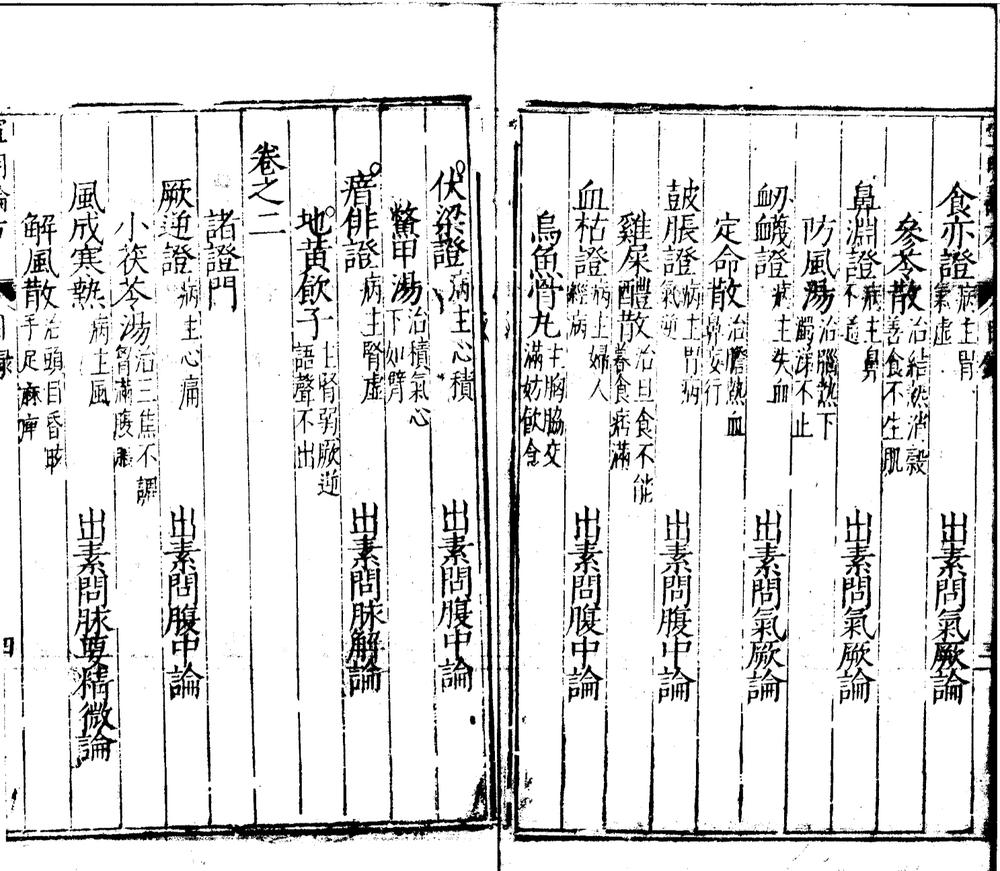 食亦證病主胃氣虛 出素問氣厥論
參苓散治結熱消穀善食不生肌
鼻淵證病主鼻不通 出素問氣厥論
防風湯治腦熱下濁涕不止
衂衊證病主失血 出素問氣厥論
定命散治膽熱血鼻妄行
鼓脹證病主胃病氣逆 出素問腹中論
雞屎醴散治旦食不能暮食痞滿
血枯證病主婦人經病 出素問腹中論
烏魚骨丸主胸脇交滿妨飲食
伏梁證病主心積 出素問腹中論
鱉甲湯治積氣心下如臂
瘖俳證病主腎虛 出素問脉解論
地黃飲子主腎弱厥逆語聲不出
卷之二
諸證門
厥逆證病主心痛 出素問腹中論
小茯苓湯治三焦不調
風成寒熱病主風 出素問脉要精微論
解風散治頭目昏眩手足麻痺
四